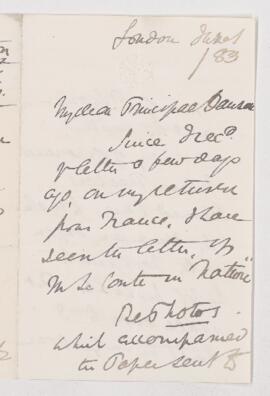 London June 1
/83
My dear Principal Dawson
Since I recd
yr letter a few days
ago, on my return
from France, I have
seen the letter, of
M Le Conte in "Nature"
Re Photos.
which accompanied
the Paper sent to